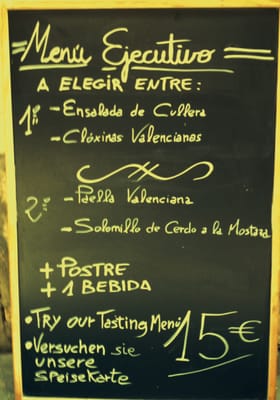 Menú Ejecutivo
A ELEGIR ENTRE:
1º - Ensalada de Cullera
- Clóxinas Valencianas
2º - Paella Valenciana
- Solomillo de Cerdo a la Mostaza
+ POSTRE
+ 1 BEBIDA
• Try our Tasting Menú
15€
• Versuchen sie
unsere
Speisekarte